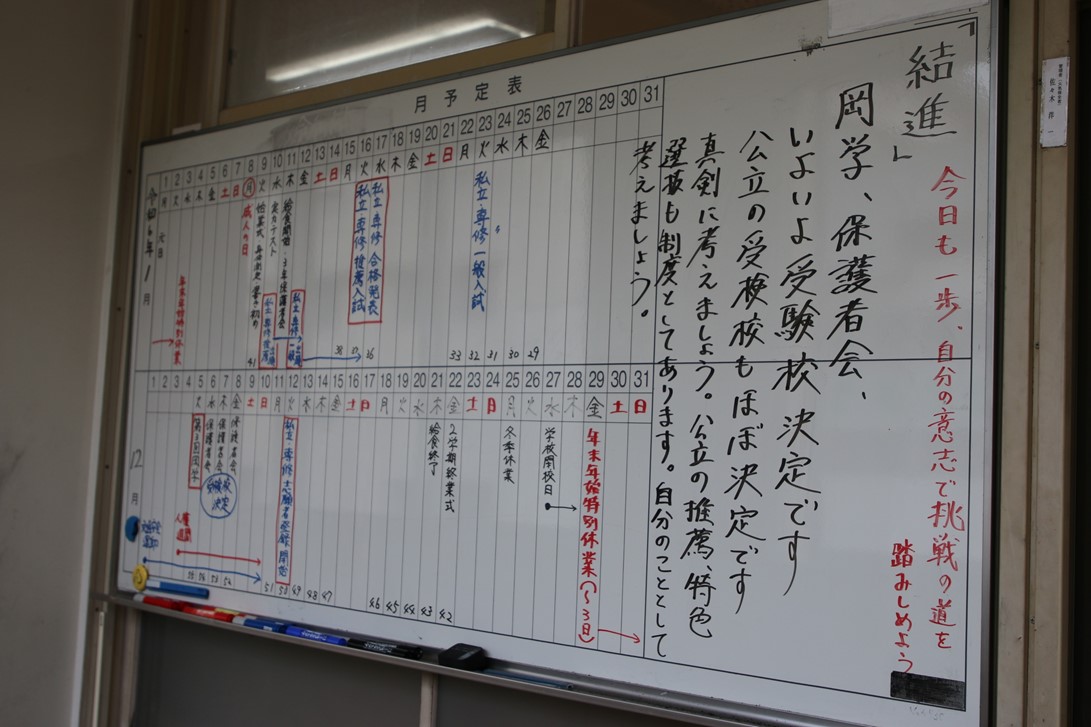 「結進」
今日も一歩、自分の意志で挑戦の道を
踏みしめよう
岡学、保護者会、
いよいよ受験校決定です
公立の受検校もほぼ決定です
真剣に考えましょう。公立の推薦、特色
選抜も制度としてあります。自分のこととして
考えましょう。
月予定表
令和6年1月
1 2 3 4 5 6 7 8 9 10 11 12 13 14 15 16 17 18 19 20 21 22 23 24 25 26 27 28 29 30 31
月 火 水 木 金 土 日 月 火 水 木 金 土 日 月 火 水 木 金 土 日 月 火 水 木 金
元日
年末年始特別休業
成人の日
実力テスト
給食開始・3年保護者会
私立・専修 推薦入試
私立・専修 合格発表
私立・専修 一般入試
41
38 37 36
33 32 31 30 29
12月
1 2 3 4 5 6 7 8 9 10 11 12 13 14 15 16 17 18 19 20 21 22 23 24 25 26 27 28 29 30 31
火 水 木 金 土 日 月 火 水 木 金 土 日 月 火 水 木 金 土 日 月 火 水 木 金 土 日
人権週間
保護者会
保護者会
保護者会
受検校決定
私立・専修 志願者登録開始
給食終了
2学期終業式
冬季休業
学校閉校日
年末年始特別休業(~3日)
51 50 49 48 47
46 45 44 43 42